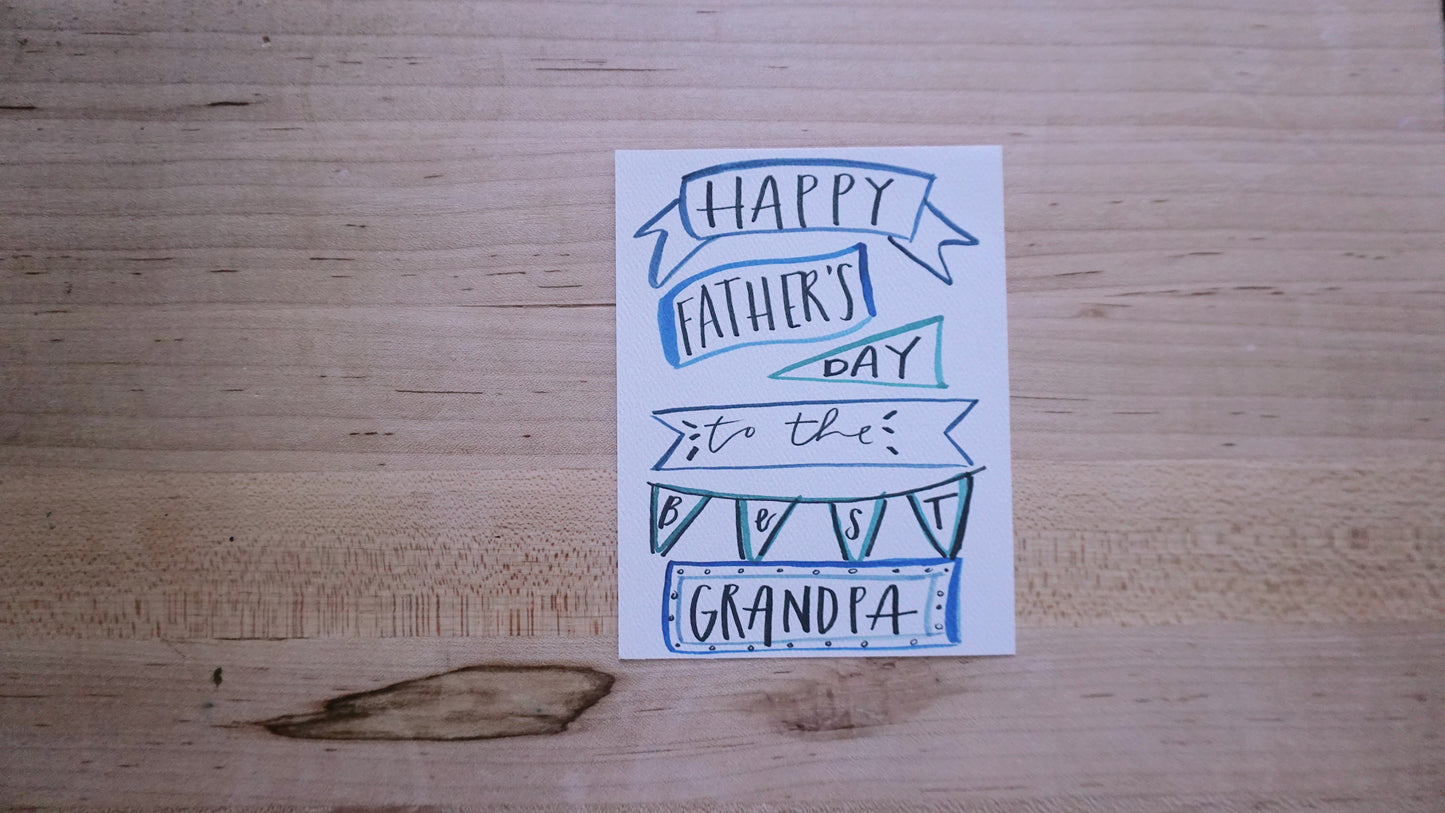 HAPPY
FATHER'S
DAY
to the
BeST
GRANDPA